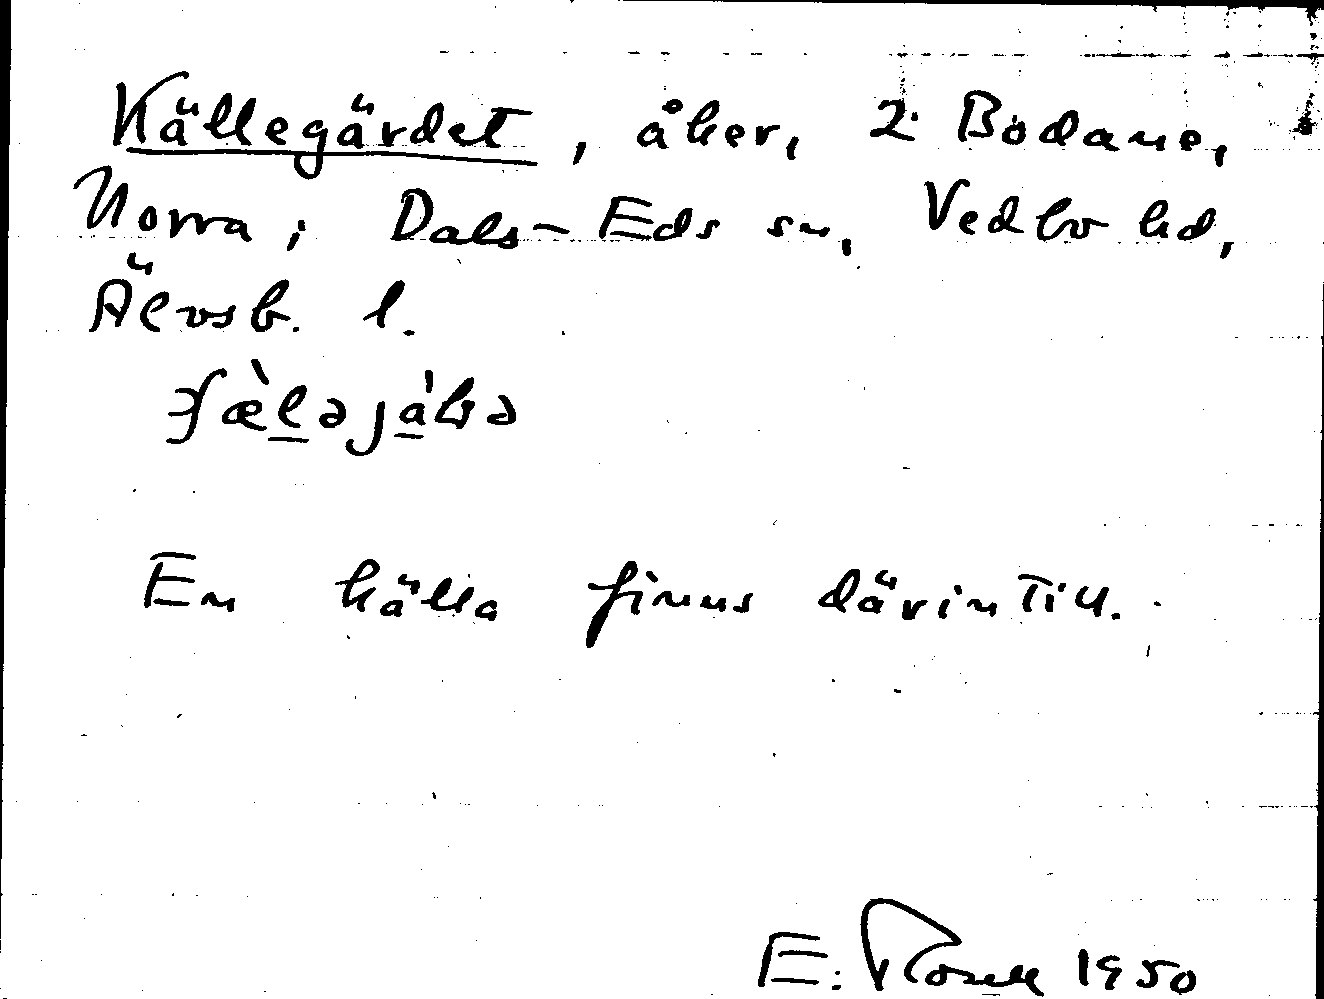 Källegärdet, åker, 2 Bodane,
Norra; Dals-Eds sn, Vedbo hd,
Älvsb. l.
En källa finns därintill.
E. Rosell 1950